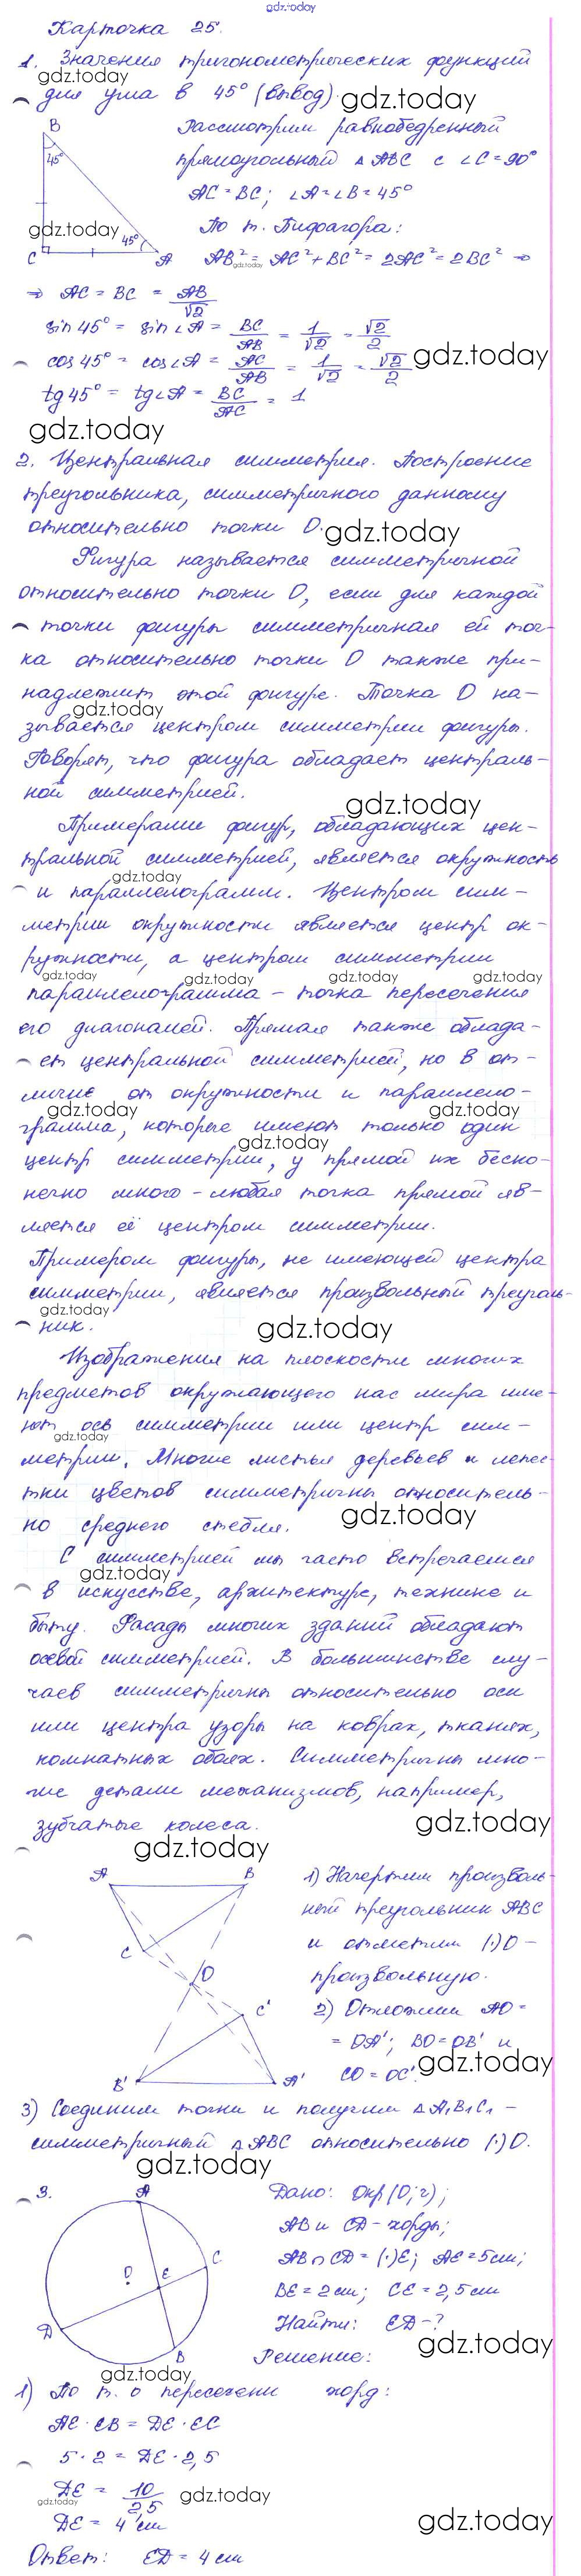 gdz.today
Карточка 25.
1. Значения тригонометрических функций
gdz.today
для угла в 45° (вывод) gdz.today
B
Рассмотрим равнобедренный
45°
прямоугольный △ABC с ∠C=90°
AC=BC; ∠A=∠B=45°
gdz.today
По т. Пифагора:
45°
C A
AB²=AC²+BC²=2AC²=2BC² ⇒
gdz.today
⇒ AC = BC = AB/√2
sin 45° = sin∠A = BC/AB = 1/√2 = √2/2
cos 45° = cos∠A = AC/AB = 1/√2 = √2/2
gdz.today
tg 45° = tg∠A = BC/AC = 1
gdz.today
2. Центральная симметрия. Построение
треугольника, симметричного данному
относительно точки O. gdz.today
Фигура называется симметричной
относительно точки O, если для каждой
точки фигуры симметричная ей точ-
ка относительно точки O также при-
надлежит этой фигуре. Точка O на-
gdz.today
зывается центром симметрии фигуры.
Говорят, что фигура обладает централь-
ной симметрией.
gdz.today
Примерами фигур, обладающих цен-
тральной симметрией, является окружность
gdz.today
и параллелограмм. Центром сим-
метрии окружности является центр ок-
ружности, а центром симметрии
gdz.today gdz.today gdz.today gdz.today
параллелограмма - точка пересечения
его диагоналей. Прямая также облада-
ет центральной симметрией, но в от-
личие от окружности и параллело-
gdz.today gdz.today
грамма, которые имеют только один
gdz.today
центр симметрии, у прямой их беско-
нечно много - любая точка прямой яв-
ляется её центром симметрии.
Примером фигуры, не имеющей центра
симметрии, является произвольный треуголь-
gdz.today
ник.
gdz.today
Изображения на плоскости многих
предметов окружающего нас мира име-
ют ось симметрии или центр сим-
gdz.today
метрии. Многие листья деревьев и лепес-
тки цветов симметричны относитель-
но среднего стебля.
gdz.today
С симметрией мы часто встречаемся
gdz.today
в искусстве, архитектуре, технике и
быту. Фасады многих зданий обладают
осевой симметрией. В большинстве слу-
чаев симметричны относительно оси
или центра узоры на коврах, тканях,
комнатных обоях. Симметричны мно-
гие детали механизмов, например,
зубчатые колеса.
gdz.today
gdz.today
A B
1) Начертим произволь-
ный треугольник ABC
C
и отметим (·)O -
O
произвольную.
C'
2) Отложим AO =
= OA'; BO=OB' и
B' A'
CO = OC'. gdz.today
3) Соединим точки и получим △A₁B₁C₁ -
симметричный △ABC относительно (·)O.
gdz.today
3.
A
Дано: Окр(O;r);
AB и CD - хорды;
C
AB∩CD=(·)E; AE=5см;
O E
BE=2см; CE=2,5см
D
Найти: ED-?
B
gdz.today
Решение:
gdz.today
1) По т. о пересечени хорд:
AE·EB=DE·EC
5·2=DE·2,5
DE = 10/2,5
gdz.today gdz.today
DE = 4 см
gdz.today
Ответ: ED=4см